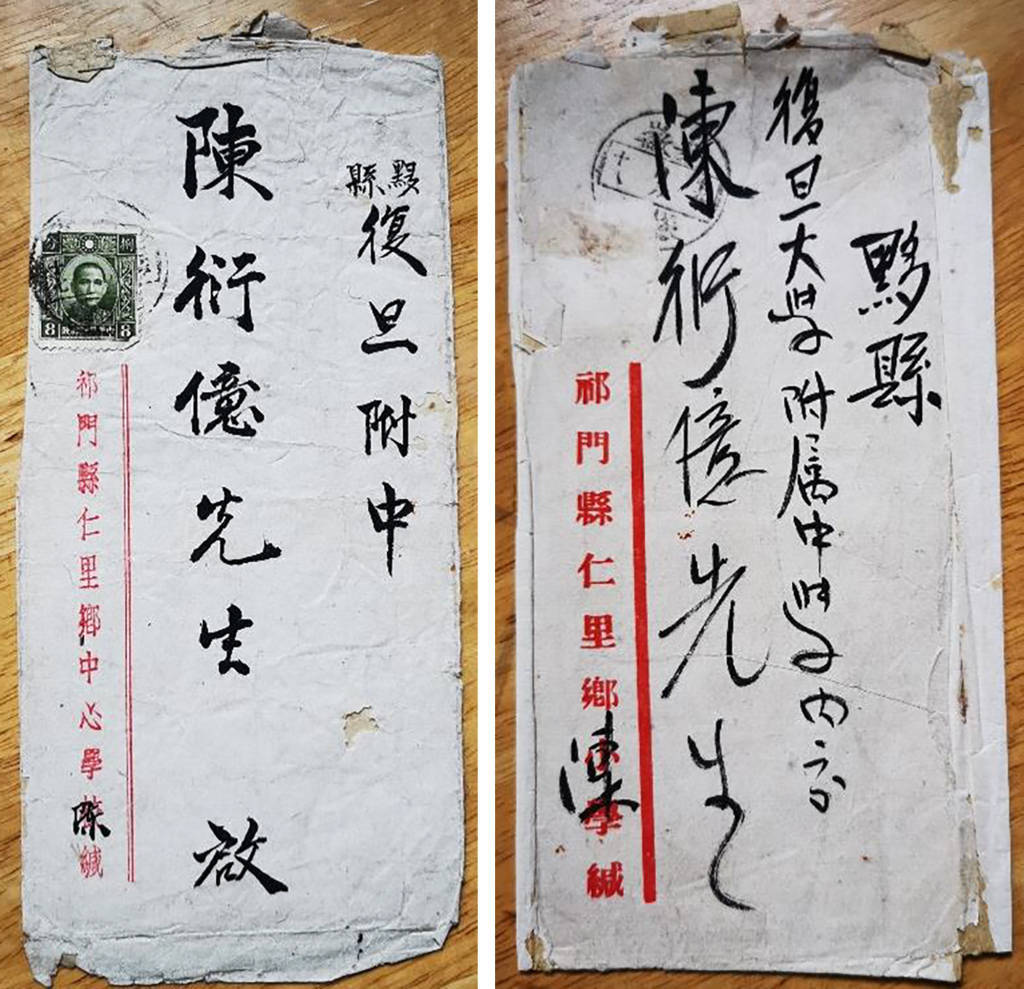 黟縣
復旦附中
陳衍億先生 啟
8 8
祁門縣仁里鄉中心學校緘
陳
黟縣
復旦大学附属中学内交
陳衍億先生
祁門縣仁里鄉小學緘
陳